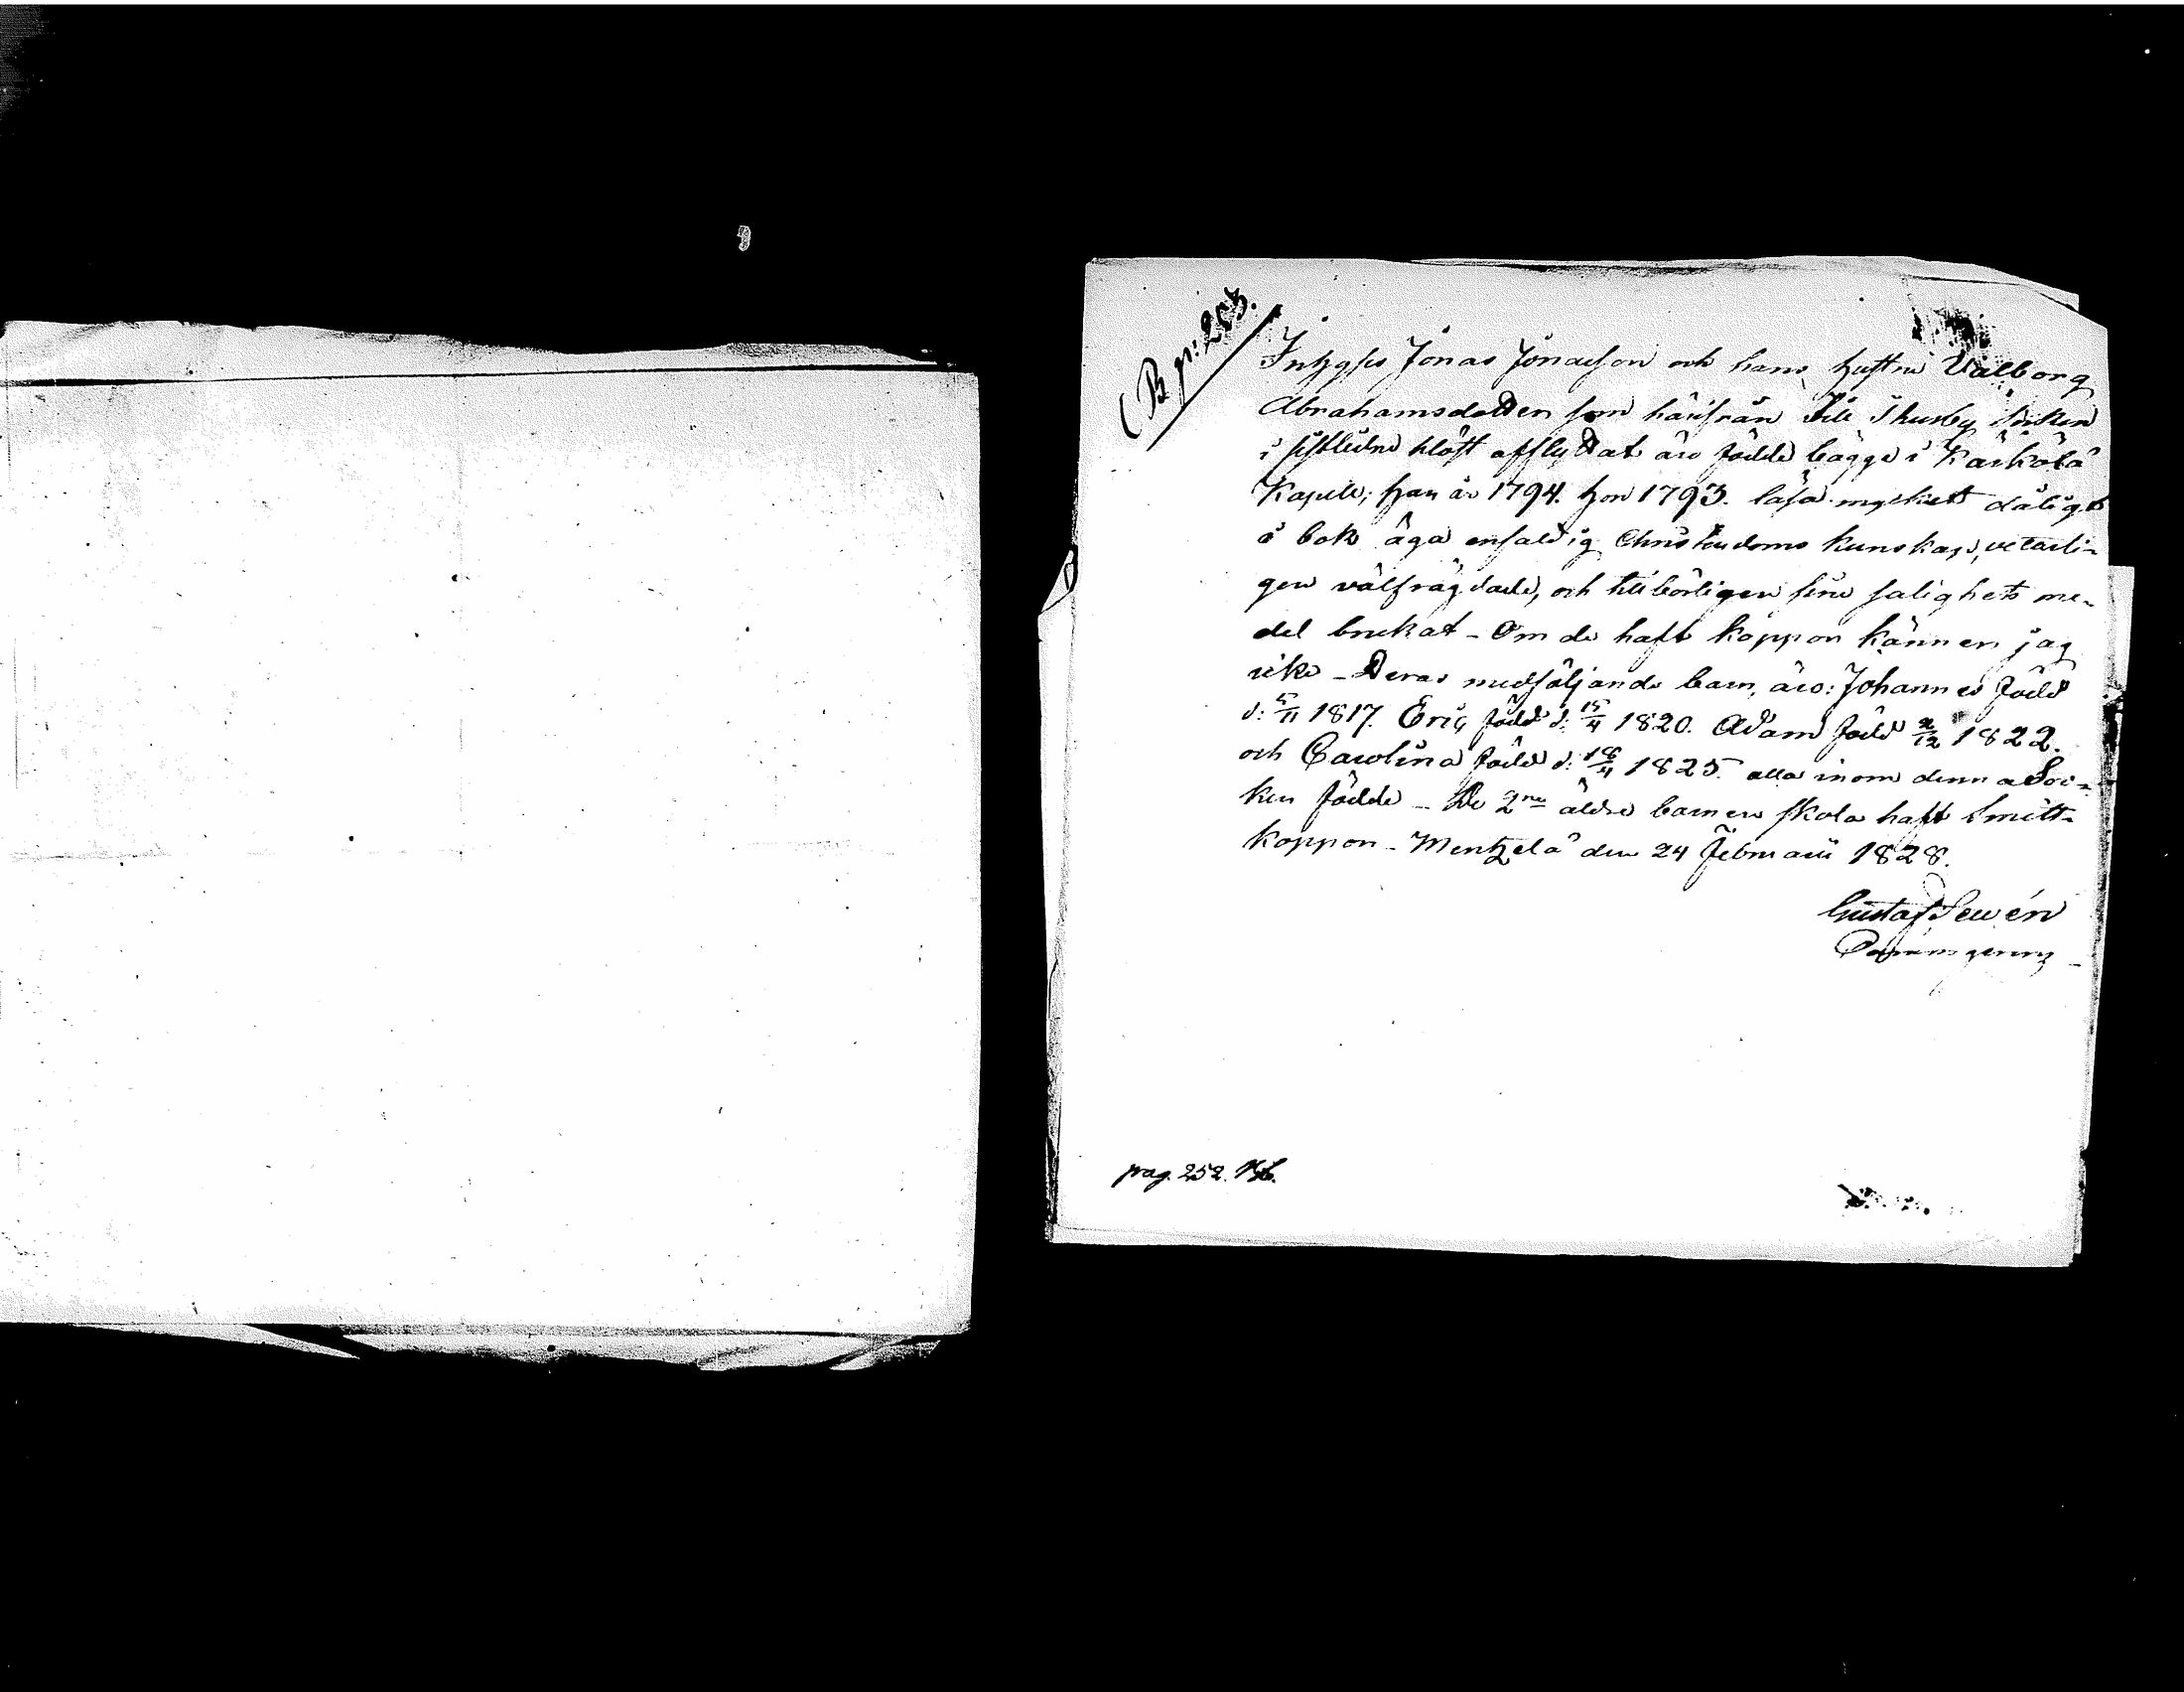 (B. p: 253.
Inhyses Jonas Jonasson och hans hustru Valborg
Abrahamsdotter som härifrån till Thusby Socken
i sistledne höst afflyttat äro födde bägge i Kärkölä
Kapell; han år 1794. hon 1793. läsa mycket dåligt
i bok äga enfaldig Christendoms kunskap, veterli-
gen välfrägdade, och tillbörligen sine salighets me-
del brukat - Om de haft koppor känner jag
icke - Deras medföljande barn, äro: Johannes född
d: 5/11 1817. Eric född d: 15/4 1820. Adam född /12 1822.
och Carolina född d: 18/4 1825. alla inom denna Soc-
ken födde - De 2ne äldre barnen skola haft Smitt-
koppor - Mentzelä den 24 Februarii 1828.
Gustaf Lewén
pag. 252.